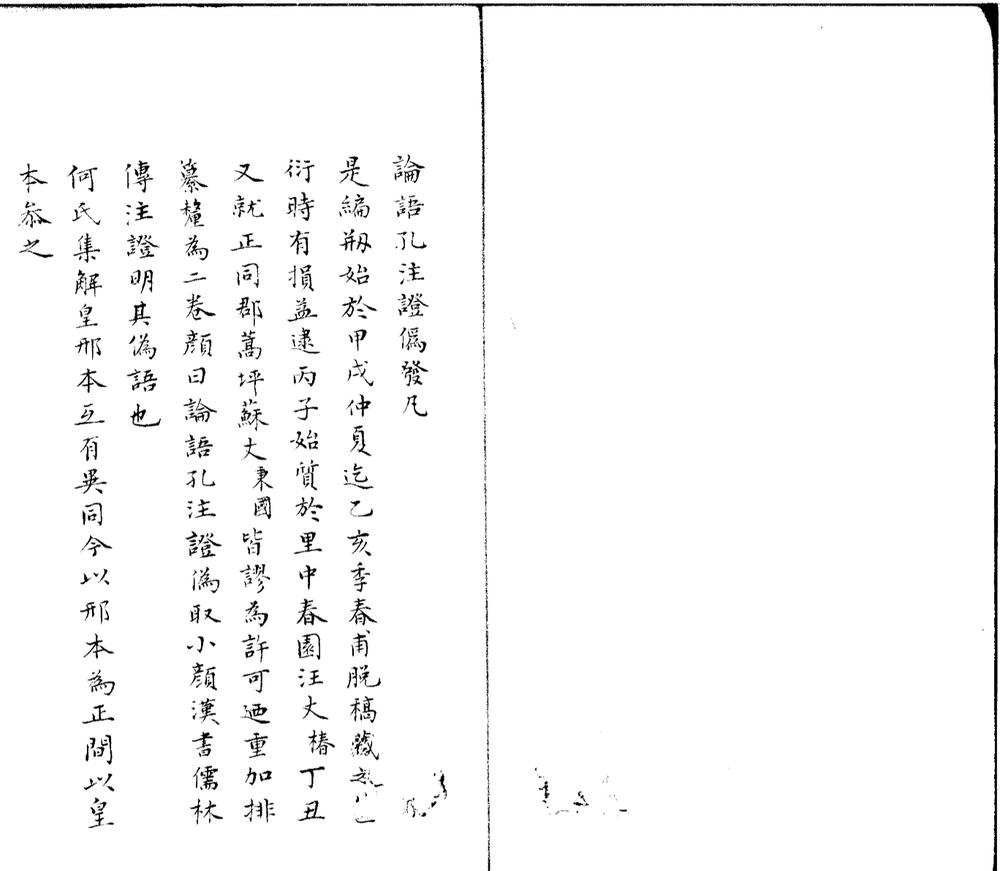 論語孔注證僞發凡
是編刱始於甲戌仲夏迄乙亥季春甫脫稿藏之
衍時有損益逮丙子始質於里中春園汪丈椿丁丑
又就正同郡蒿坪蘇丈秉國皆謬為許可迺重加排
纂釐為二卷顏曰論語孔注證偽取小顏漢書儒林
傳注證明其偽語也
何氏集解皇邢本互有異同今以邢本為正間以皇
本叅之